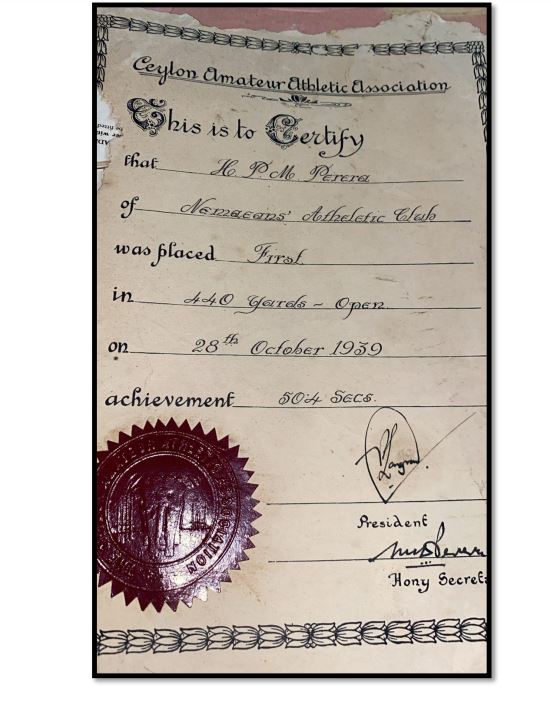 Ceylon Amateur Athletic Association
This is to Certify
that H. P. M. Perera
of Nemaeans' Atheletic Club
was placed First
in 440 Yards - Open
on 28th October 1939
achievement 50.4 Secs.
President
Hony Secreta